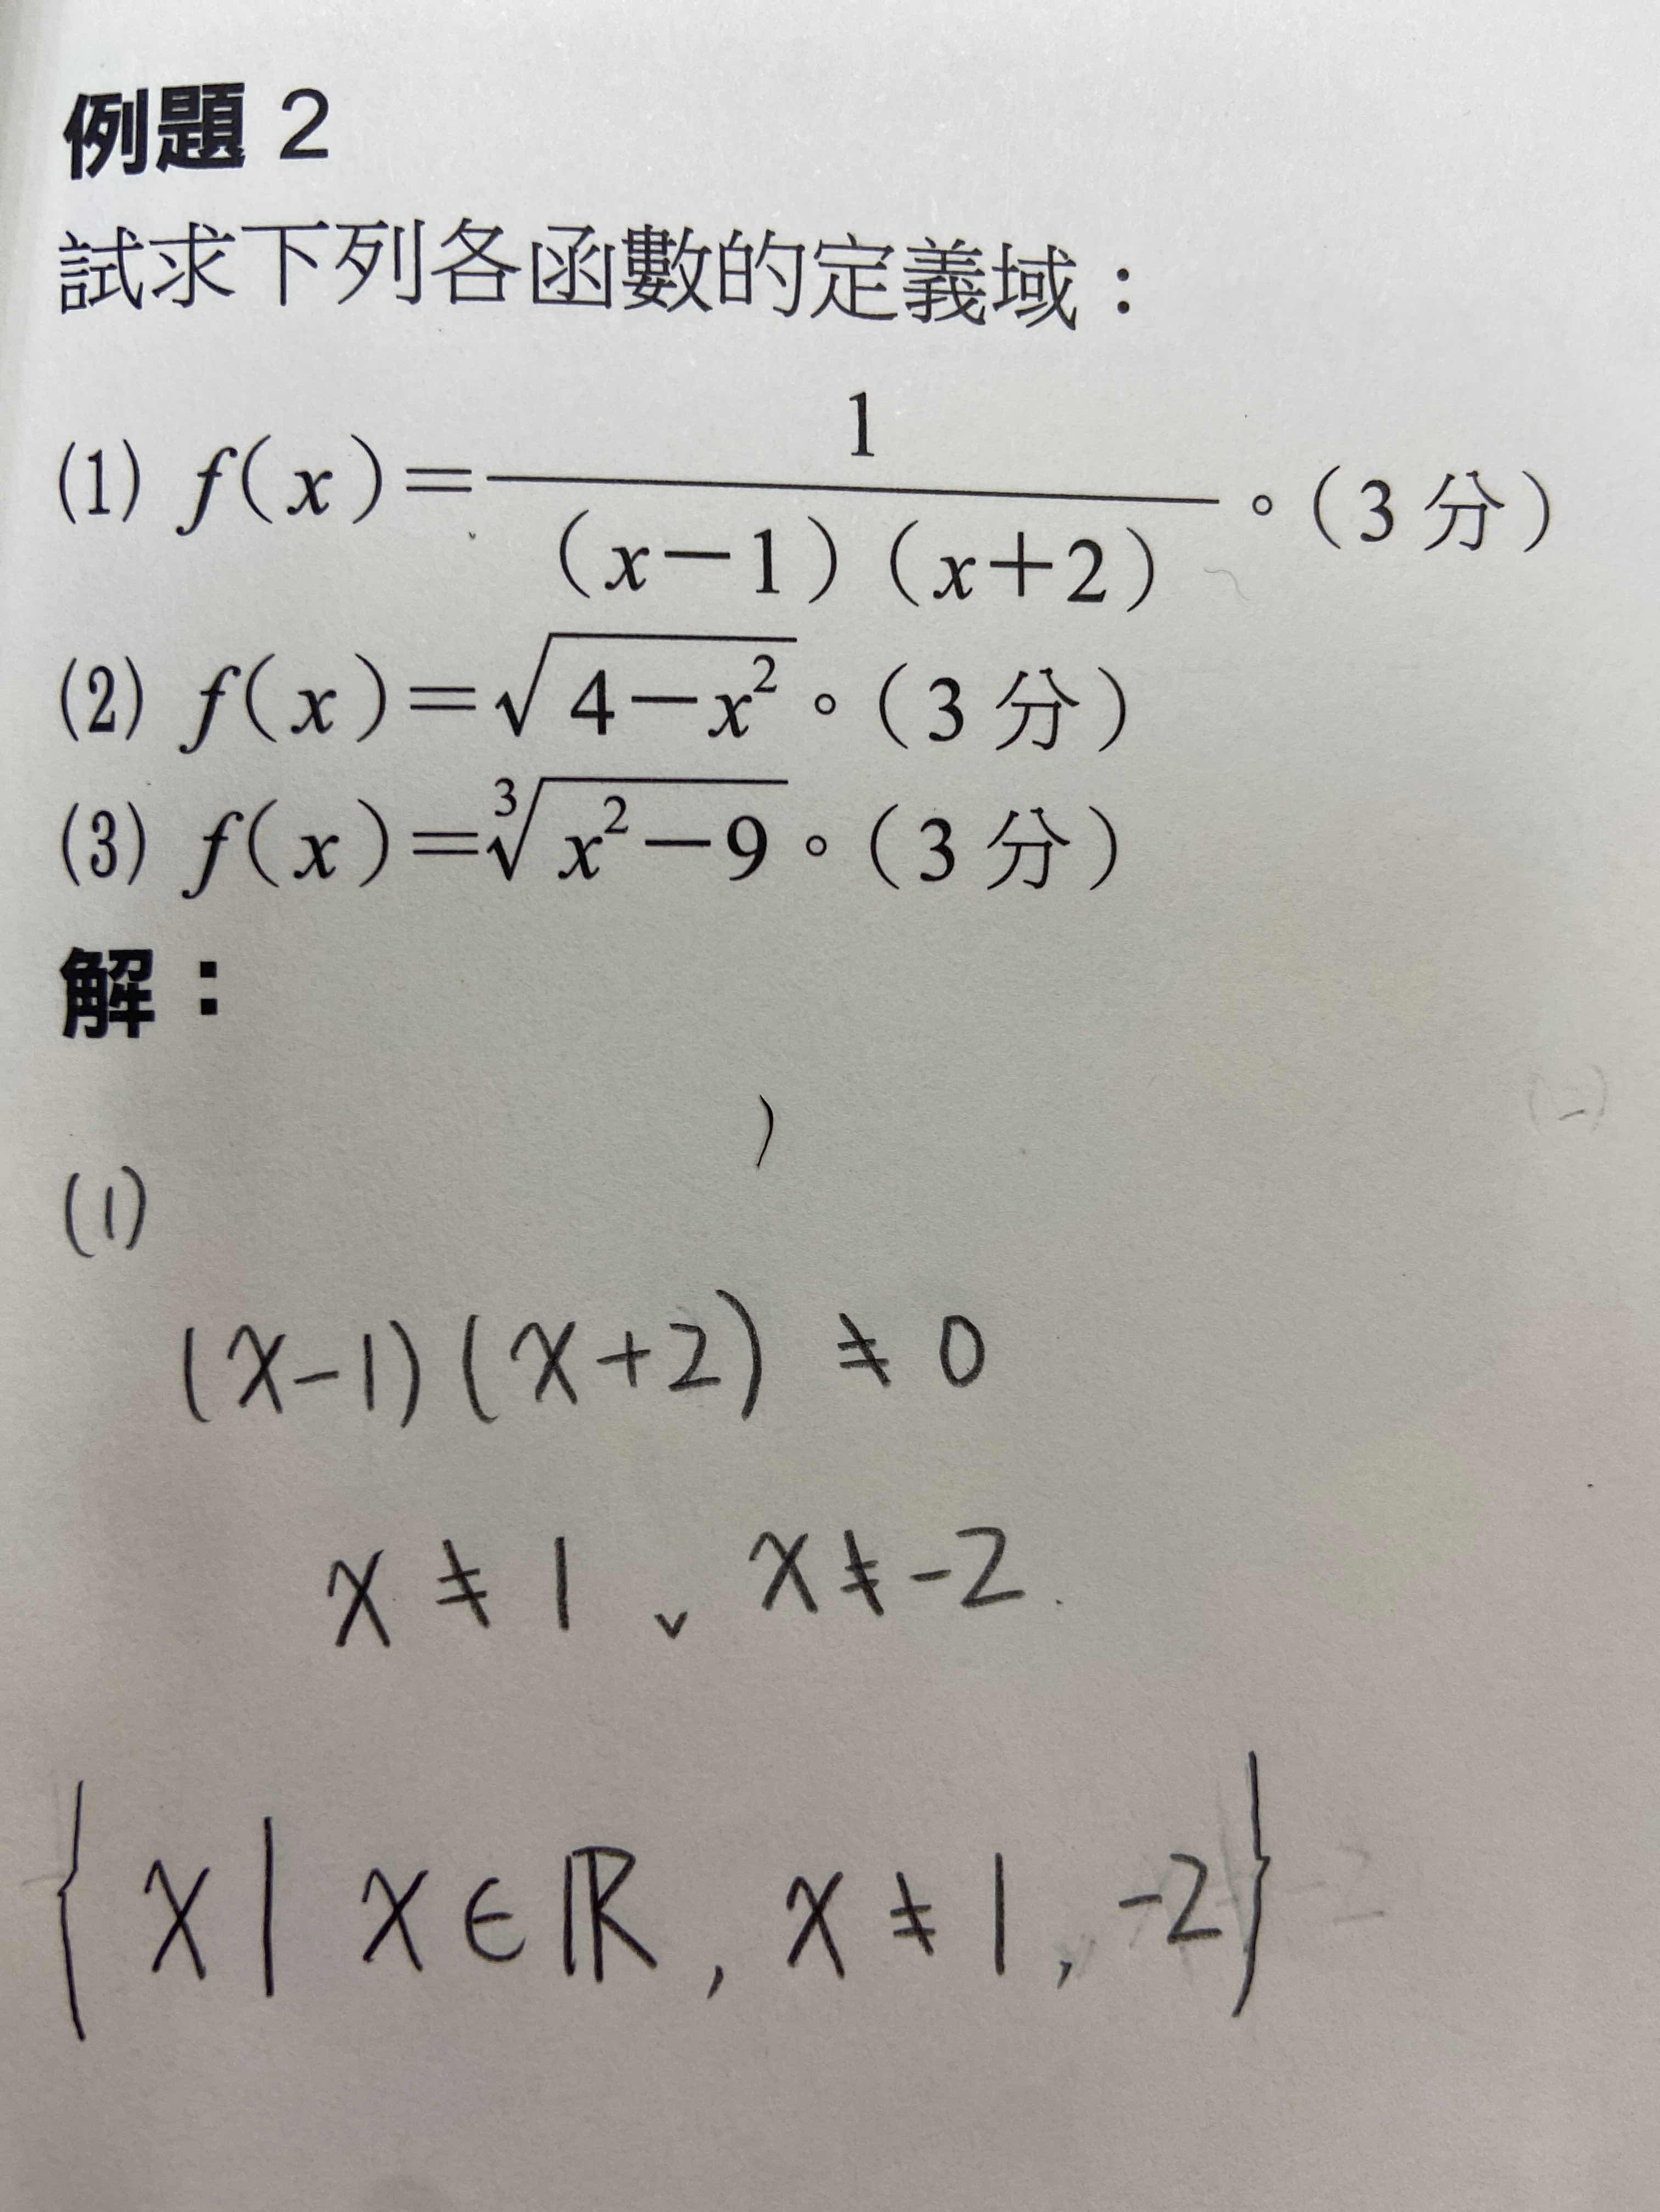 例題 2
試求下列各函數的定義域：
(1) f(x)=1/((x−1)(x+2))。(3 分)
(2) f(x)=√(4−x²)。(3 分)
(3) f(x)=∛(x²−9)。(3 分)
解：
(1)
(x-1)(x+2) ≠ 0
x ≠ 1 、 x ≠ -2
{x | x ∈ ℝ , x ≠ 1 , -2}